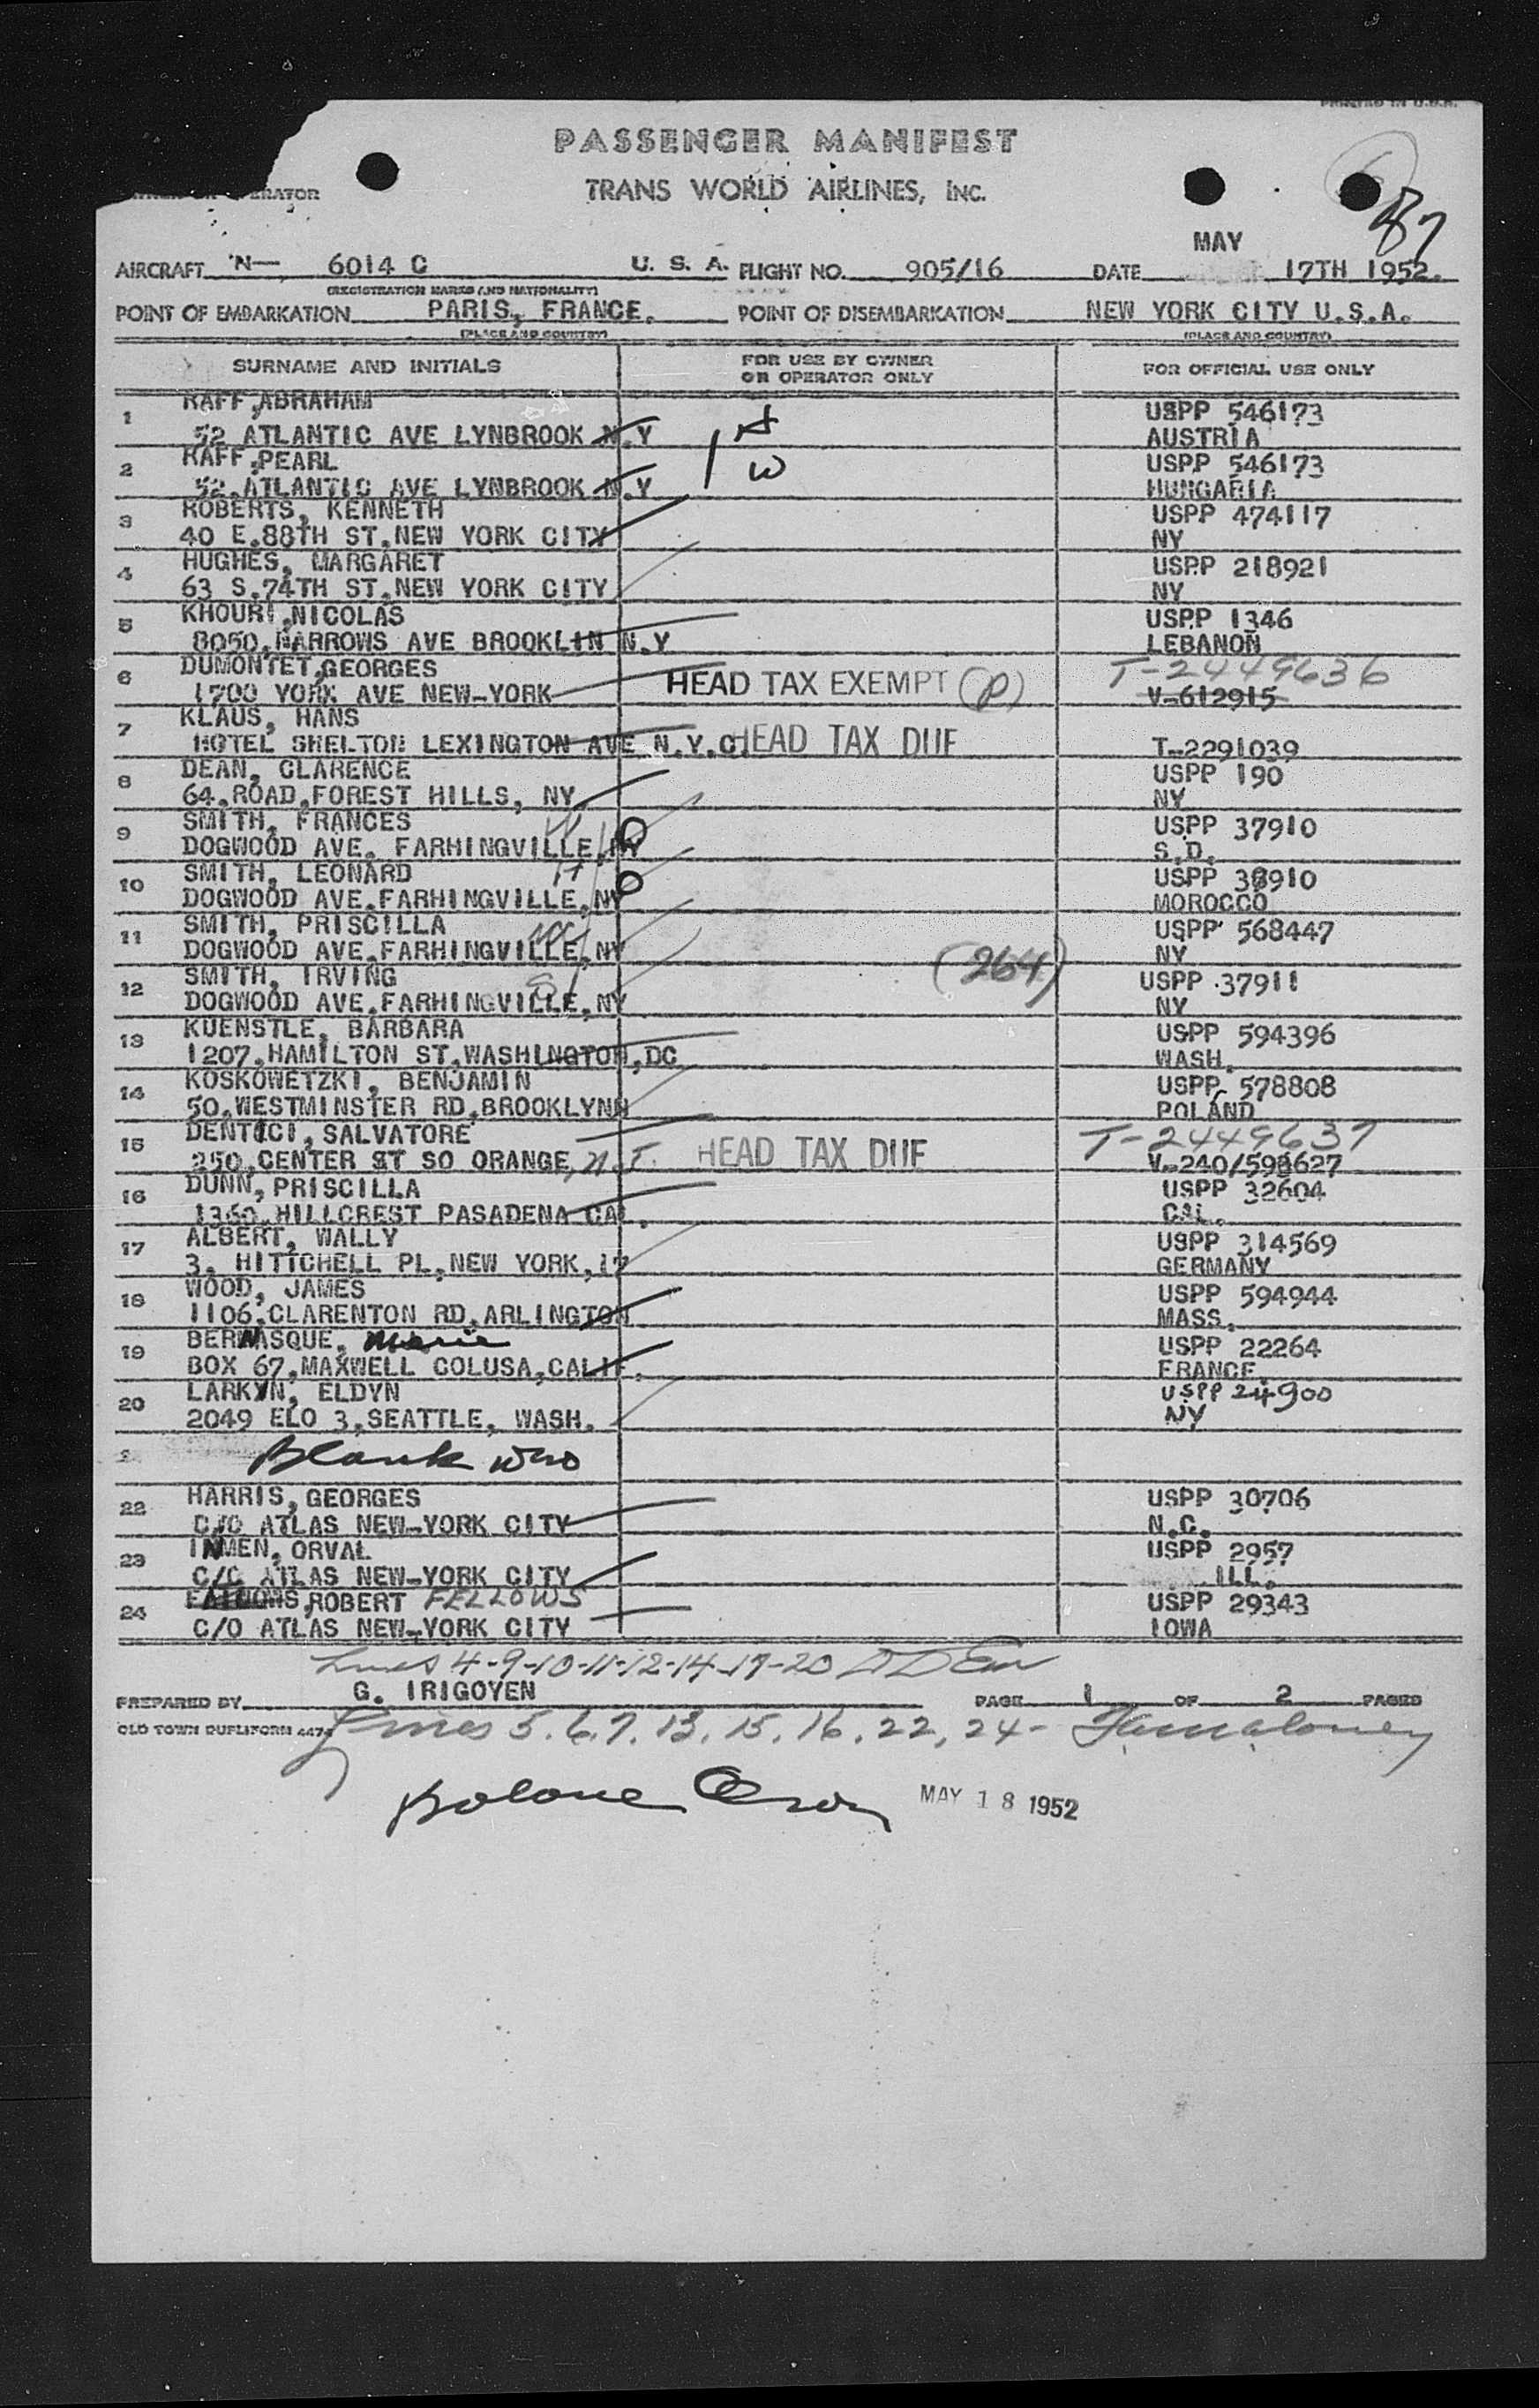 PRINTED IN U.S.A.
PASSENGER MANIFEST
OWNER OR OPERATOR
TRANS WORLD AIRLINES, INC.
87
MAY
AIRCRAFT N— 6014 C U. S. A. FLIGHT NO. 905/16 DATE 17TH 1952.
(REGISTRATION MARKS AND NATIONALITY)
POINT OF EMBARKATION PARIS, FRANCE. POINT OF DISEMBARKATION NEW YORK CITY U.S.A.
(PLACE AND COUNTRY) (PLACE AND COUNTRY)
SURNAME AND INITIALS FOR USE BY OWNER OR OPERATOR ONLY FOR OFFICIAL USE ONLY
1 RAFF, ABRAHAM H USPP 546173
52 ATLANTIC AVE LYNBROOK N.Y AUSTRIA
2 RAFF, PEARL W USPP 546173
52. ATLANTIC AVE LYNBROOK N.Y HUNGARIA
3 ROBERTS, KENNETH USPP 474117
40 E.88TH ST.NEW YORK CITY NY
4 HUGHES, MARGARET USPP 218921
63 S.74TH ST.NEW YORK CITY NY
5 KHOURI,NICOLAS USPP 1346
8050.NARROWS AVE BROOKLIN N.Y LEBANON
6 DUMONTET,GEORGES HEAD TAX EXEMPT (P) T-2449636
1700 YORK AVE NEW-YORK V-612915
7 KLAUS, HANS HEAD TAX DUE
HOTEL SHELTON LEXINGTON AVE N.Y.C. T-2291039
8 DEAN, CLARENCE USPP 190
64.ROAD,FOREST HILLS, NY NY
9 SMITH, FRANCES W USPP 37910
DOGWOOD AVE. FARHINGVILLE,NY S.D.
10 SMITH, LEONARD H USPP 38910
DOGWOOD AVE.FARHINGVILLE,NY MOROCCO
11 SMITH, PRISCILLA USPP 568447
DOGWOOD AVE.FARHINGVILLE,NY NY
12 SMITH, IRVING S (264) USPP 37911
DOGWOOD AVE.FARHINGVILLE,NY NY
13 KUENSTLE, BARBARA USPP 594396
1207.HAMILTON ST.WASHINGTON,DC WASH.
14 KOSKOWETZKI, BENJAMIN USPP 578808
50.WESTMINSTER RD.BROOKLYNN POLAND
15 DENTICI, SALVATORE HEAD TAX DUE T-2449637
250.CENTER ST SO ORANGE, N.J. V-240/598627
16 DUNN, PRISCILLA USPP 32604
1360.HILLCREST PASADENA CAL. CAL.
17 ALBERT, WALLY USPP 314569
3. HITTCHELL PL.NEW YORK,17 GERMANY
18 WOOD, JAMES USPP 594944
1106.CLARENTON RD.ARLINGTON MASS.
19 BERNASQUE, Marie USPP 22264
BOX 67,MAXWELL COLUSA,CALIF. FRANCE
20 LARKYN, ELDYN USPP 24900
2049 ELO 3.SEATTLE, WASH. NY
Blank
22 HARRIS, GEORGES USPP 30706
C/O ATLAS NEW-YORK CITY N.C.
23 INMEN, ORVAL USPP 2957
C/O ATLAS NEW-YORK CITY ILL.
24 ROBERT FELLOWS USPP 29343
C/O ATLAS NEW-YORK CITY IOWA
Lines 4-9-10-11-12-14-17-20
PREPARED BY G. IRIGOYEN PAGE 1 OF 2 PAGES
OLD TOWN DUPLIFORM 4474
Lines 5.6.7.13.15.16.22,24-
MAY 18 1952